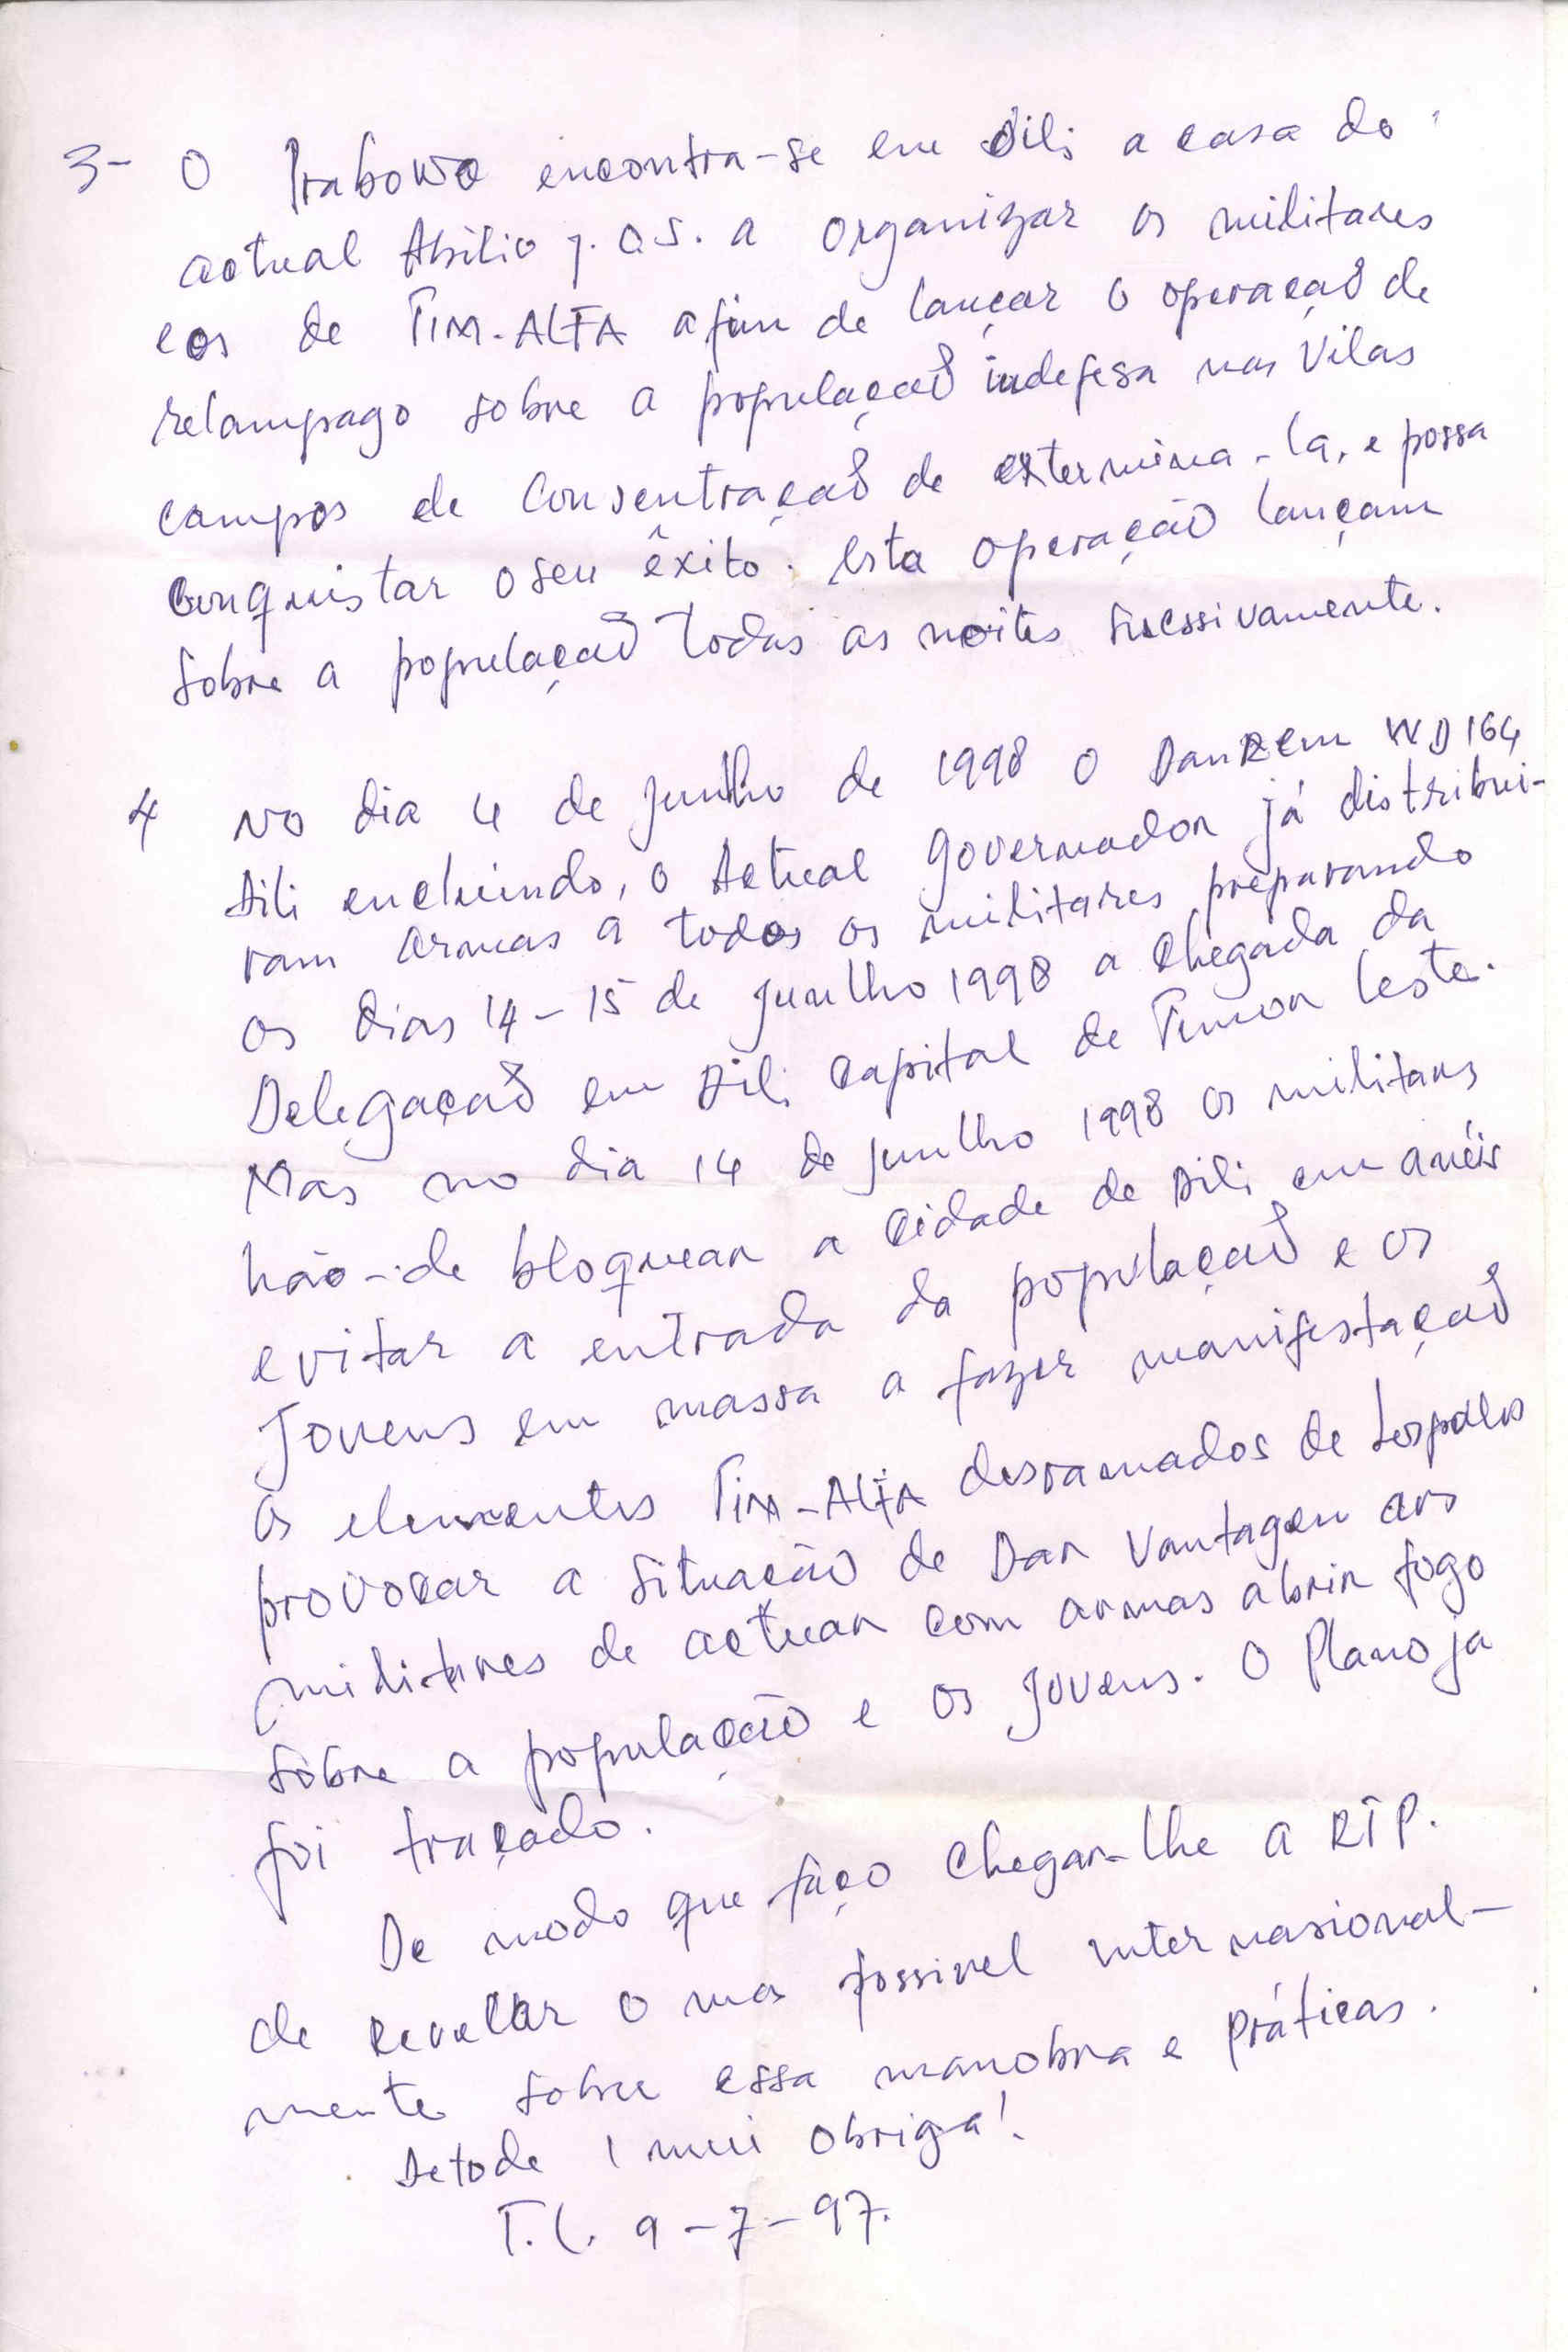 3- O Prabowo encontra-se em Dili a casa do
actual Abílio J. O.S. a organizar os militares
e os de TIM-ALFA afim de lançar o operaçaõ de
relampago sobre a populaçaõ indefesa nas Vilas
campos de Consentraçaõ de extermina-la, e possa
conquistar o seu êxito. Esta operação lançam
sobre a populaçaõ todas as noites sucessivamente.
4 No dia 4 de Junlho de 1998 o DanRem WD 164
Dili encluindo, o Actual governador já distribui-
ram armas a todos os militares preparando
os dias 14-15 de Junlho 1998 a chegada da
Delegaçaõ em Dili Capital de Timor Leste.
Mas no dia 14 de Junlho 1998 os militares
hão-de bloquear a cidade de Dili em anéis
evitar a entrada da populaçaõ e os
Jovens em massa a fazer manifestaçaõ
Os elementos TIM-ALFA desramados de Lospalos
provocar a situação de Dar Vantagem aos
militares de actuar com armas abrir fogo
sobre a população e os Jovens. O Plano ja
foi traçado.
De modo que faço chegar-lhe a RTP.
de revelar o mas possivel internasional-
mente sobre essa manobra e práticas.
Actode 1 mui obriga!
T.L. 9-7-97.